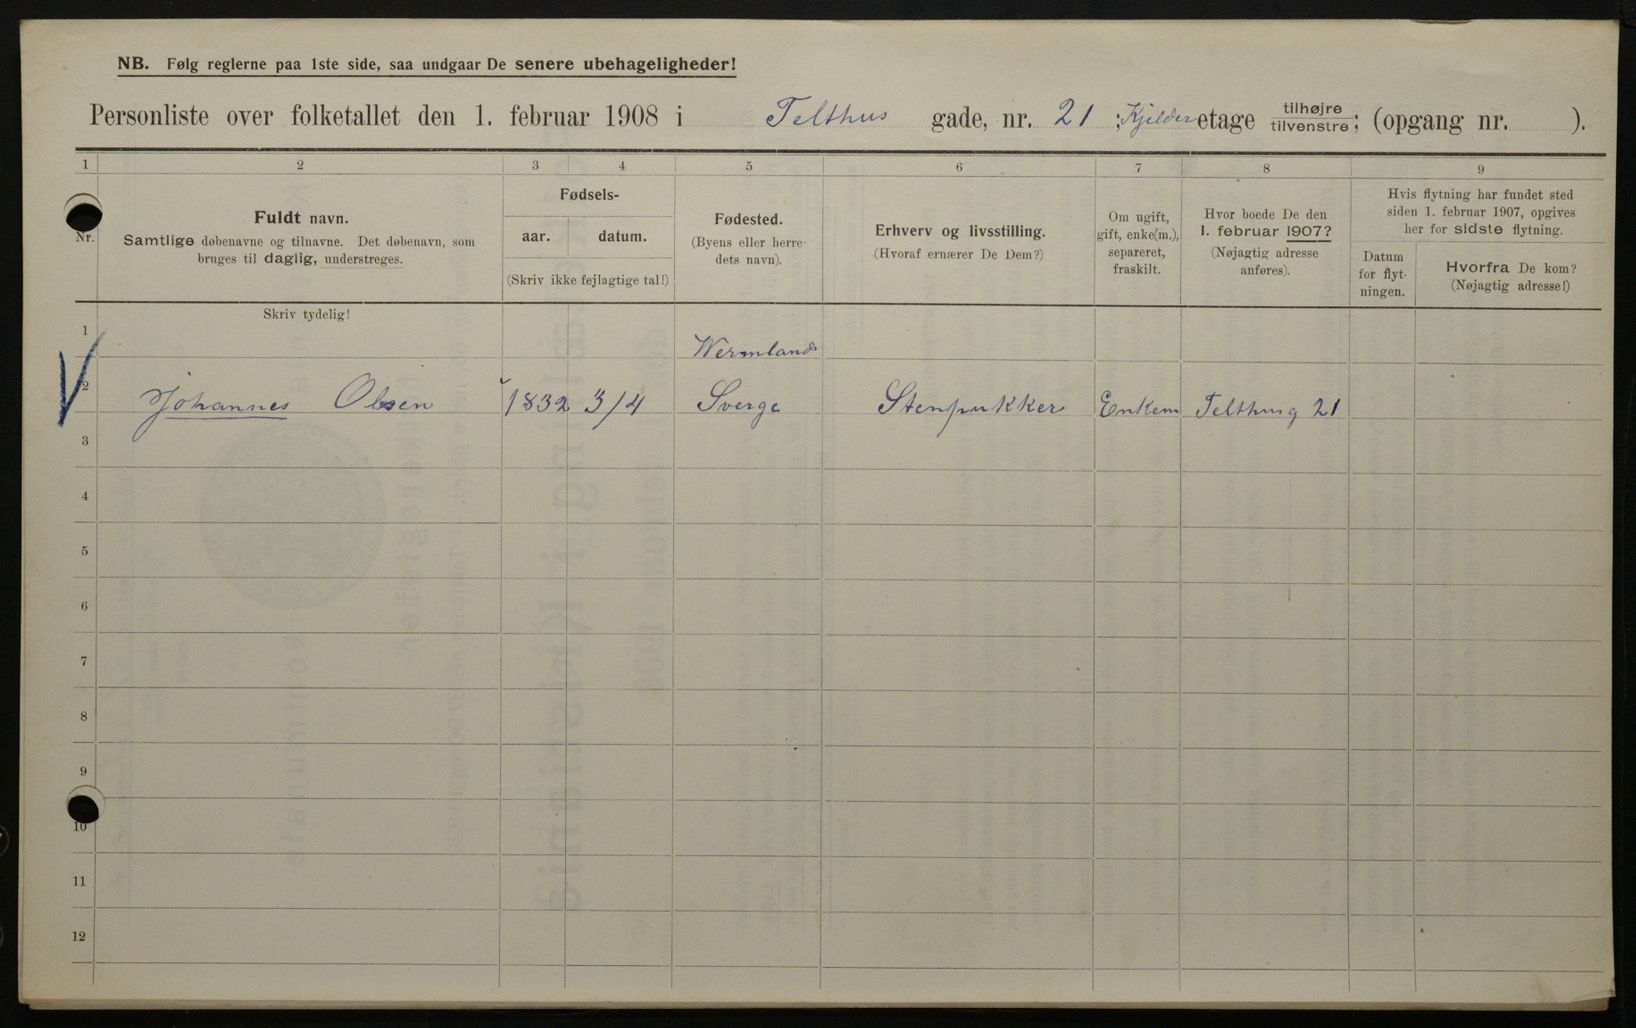 NB. Følg reglerne paa 1ste side, saa undgaar De senere ubehageligheder!
Personliste over folketallet den 1. februar 1908 i Telthus gade, nr. 21 ; Kjelder etage tilhøjre tilvenstre; (opgang nr. ).
1 2 3 4 5 6 7 8 9
Nr.
Fuldt navn.
Samtlige døbenavne og tilnavne. Det døbenavn, som
bruges til daglig, understreges.
Fødsels-
aar. datum.
(Skriv ikke fejlagtige tal!)
Fødested.
(Byens eller herre-
dets navn).
Erhverv og livsstilling.
(Hvoraf ernærer De Dem?)
Om ugift,
gift, enke(m.),
separeret,
fraskilt.
Hvor boede De den
1. februar 1907?
(Nøjagtig adresse
anføres).
Hvis flytning har fundet sted
siden 1. februar 1907, opgives
her for sidste flytning.
Datum
for flyt-
ningen.
Hvorfra De kom?
(Nøjagtig adresse!)
Skriv tydelig!
1 Wermland
2 Johannes Olsen 1832 3/4 Sverge Stenpukker Enkem Telthusg 21
3
4
5
6
7
8
9
10
11
12